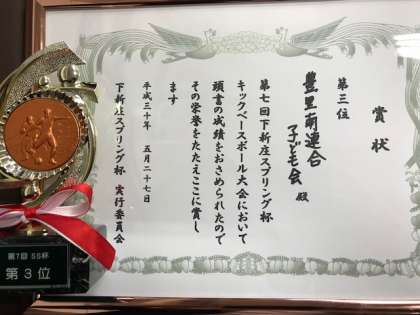 賞状
第三位
豊里南連合
子ども会 殿
第七回下新庄スプリング杯
キックベースボール大会において
頭書の成績をおさめられたので
その栄誉をたたえここに賞し
ます
平成三十年 五月二十七日
下新庄スプリング杯 実行委員会
第7回 SS杯
第3位